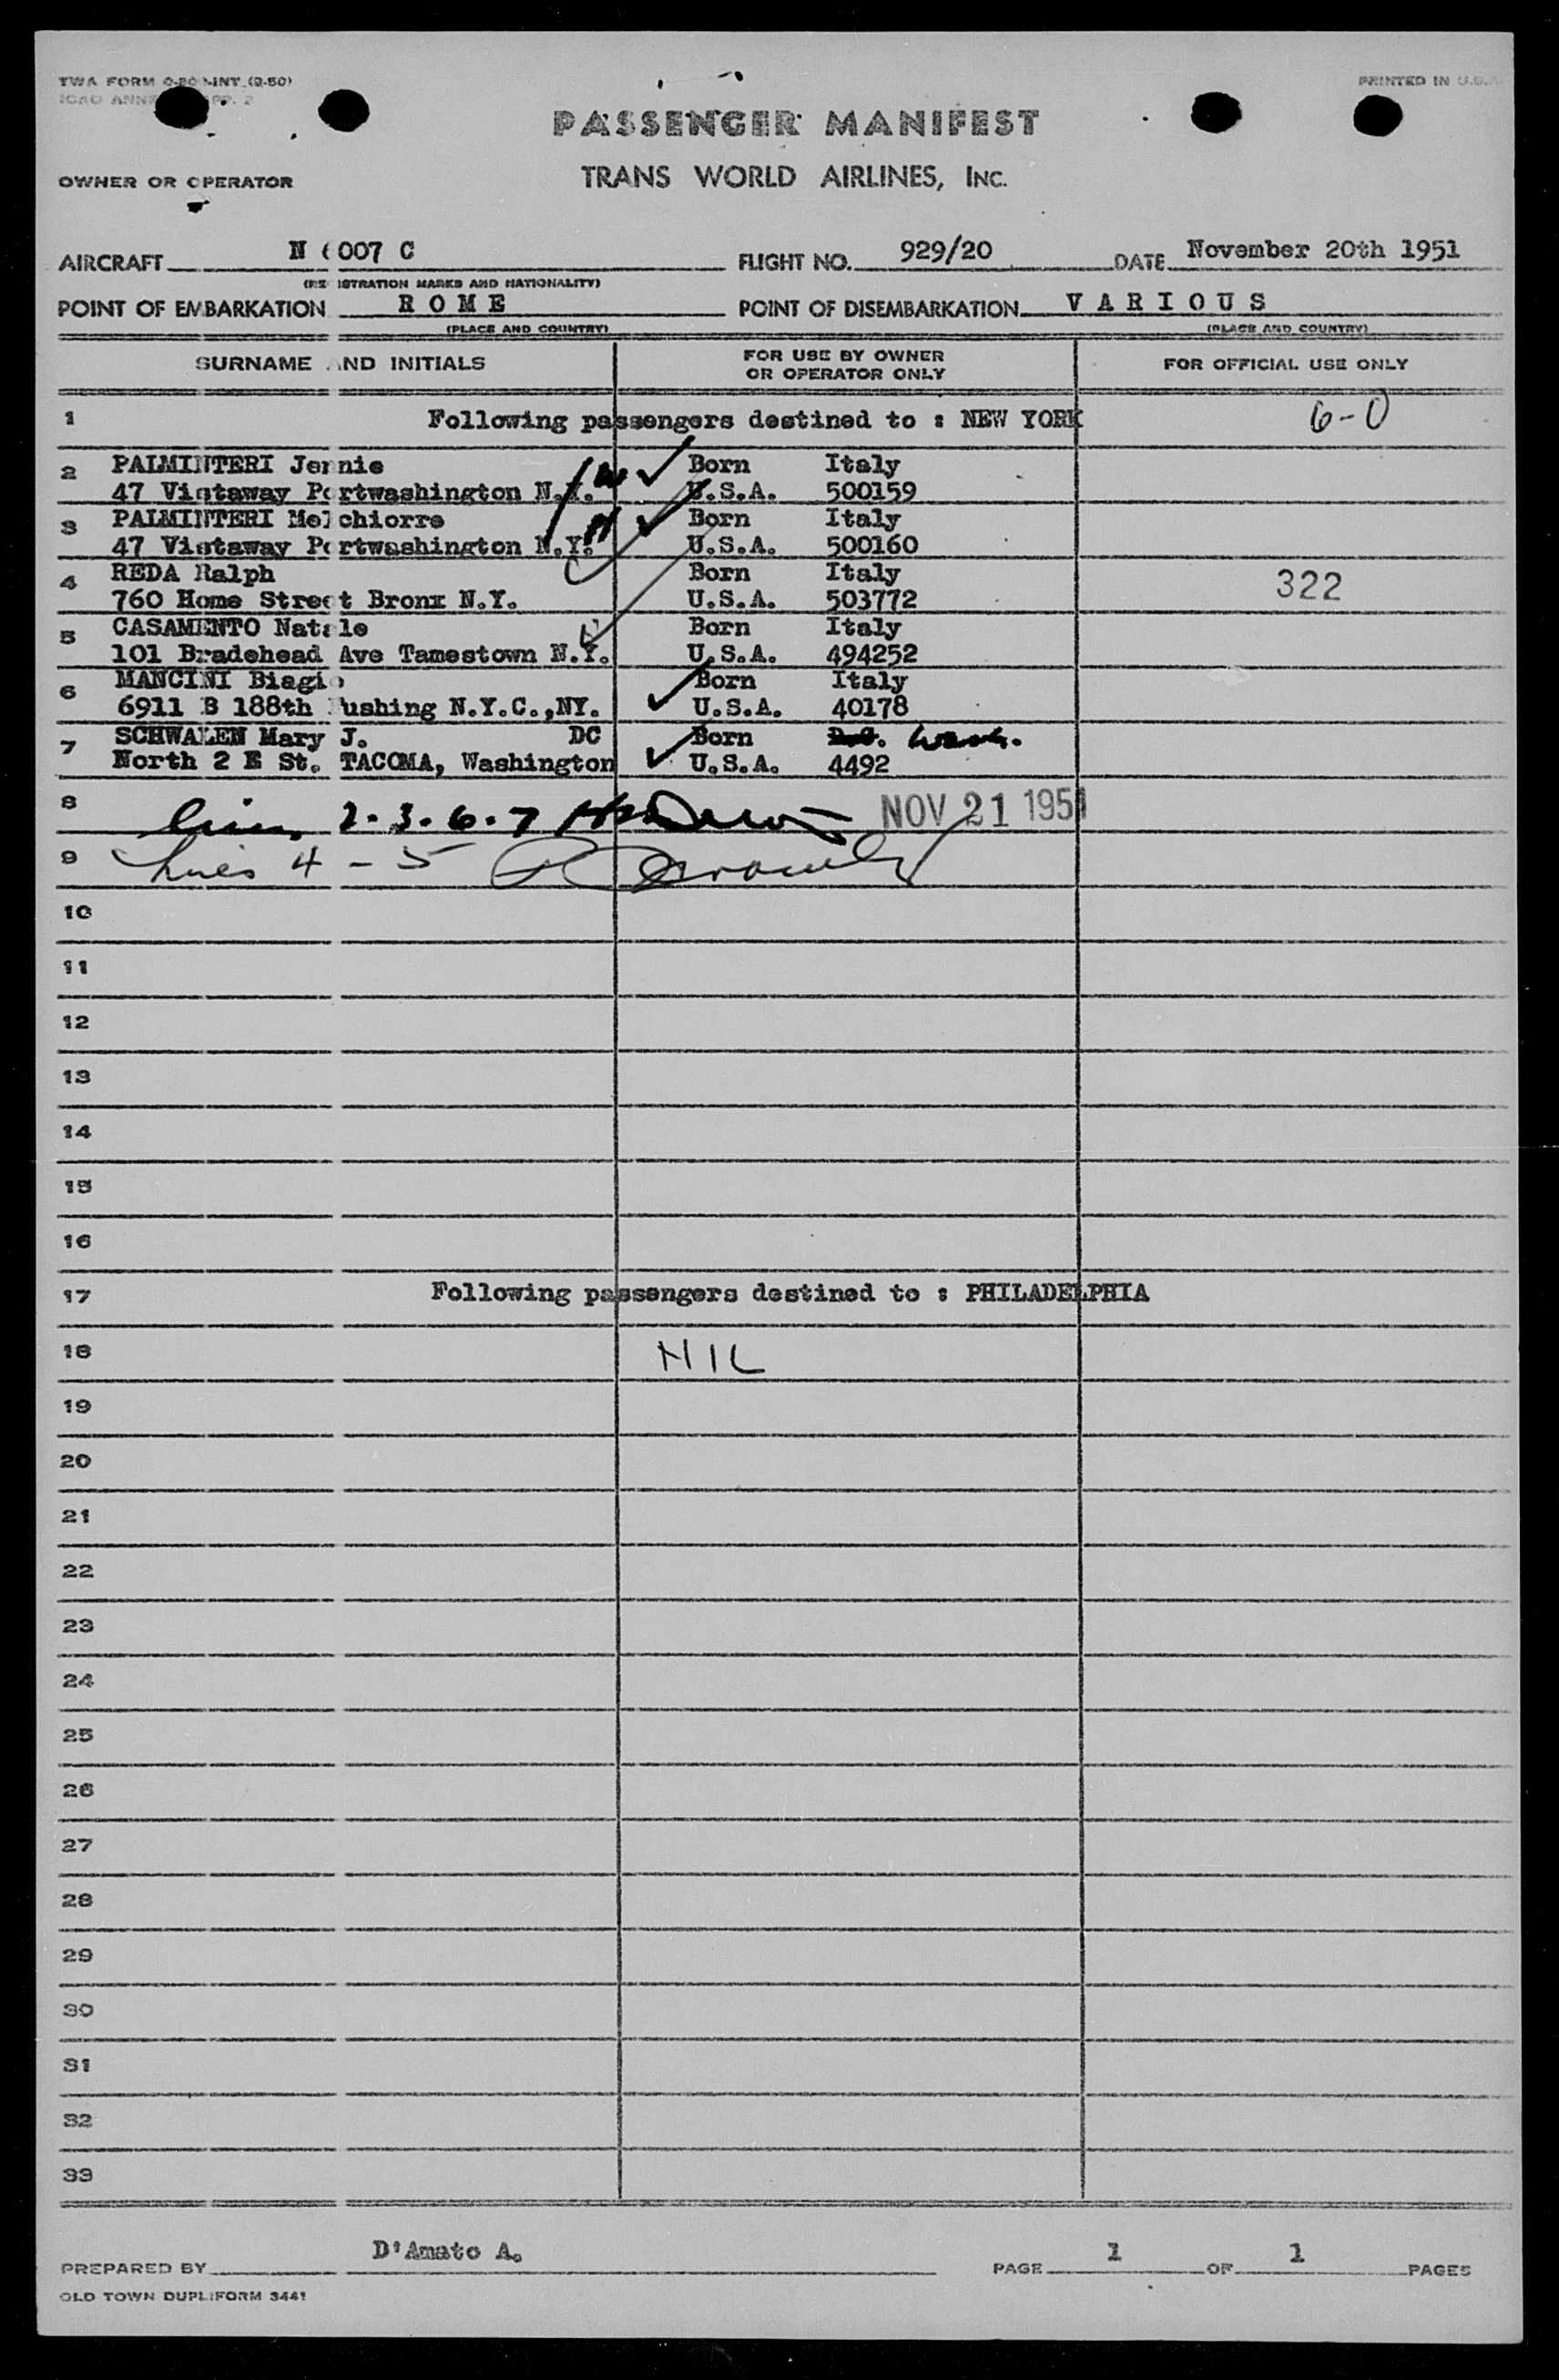 TWA FORM -INT (2-50)
PRINTED IN U.S.A.
ICAO
PASSENGER MANIFEST
OWNER OR OPERATOR
TRANS WORLD AIRLINES, INC.
AIRCRAFT N 6007 C FLIGHT NO. 929/20 DATE November 20th 1951
(REGISTRATION MARKS AND NATIONALITY)
POINT OF EMBARKATION ROME POINT OF DISEMBARKATION VARIOUS
(PLACE AND COUNTRY) (PLACE AND COUNTRY)
SURNAME AND INITIALS FOR USE BY OWNER OR OPERATOR ONLY FOR OFFICIAL USE ONLY
1 Following passengers destined to : NEW YORK 6-0
2 PALMINTERI Jennie W Born Italy
47 Vistaway Portwashington N.Y. U.S.A. 500159
3 PALMINTERI Melchiorre H Born Italy
47 Vistaway Portwashington N.Y. U.S.A. 500160
4 REDA Ralph Born Italy 322
760 Home Street Bronx N.Y. U.S.A. 503772
5 CASAMENTO Natale Born Italy
101 Bradehead Ave Tamestown N.Y. U.S.A. 494252
6 MANCINI Biagio Born Italy
6911 B 188th ushing N.Y.C.,NY. U.S.A. 40178
7 SCHWALEN Mary J. DC Born D.C. Wash.
North 2 E St. TACOMA, Washington U.S.A. 4492
8 Lines 2-3-6-7 NOV 21 1951
9 Lines 4-5
10
11
12
13
14
15
16
17 Following passengers destined to : PHILADELPHIA
18 NIL
19
20
21
22
23
24
25
26
27
28
29
30
31
32
33
PREPARED BY D'Amato A. PAGE 1 OF 1 PAGES
OLD TOWN DUPLIFORM 3441